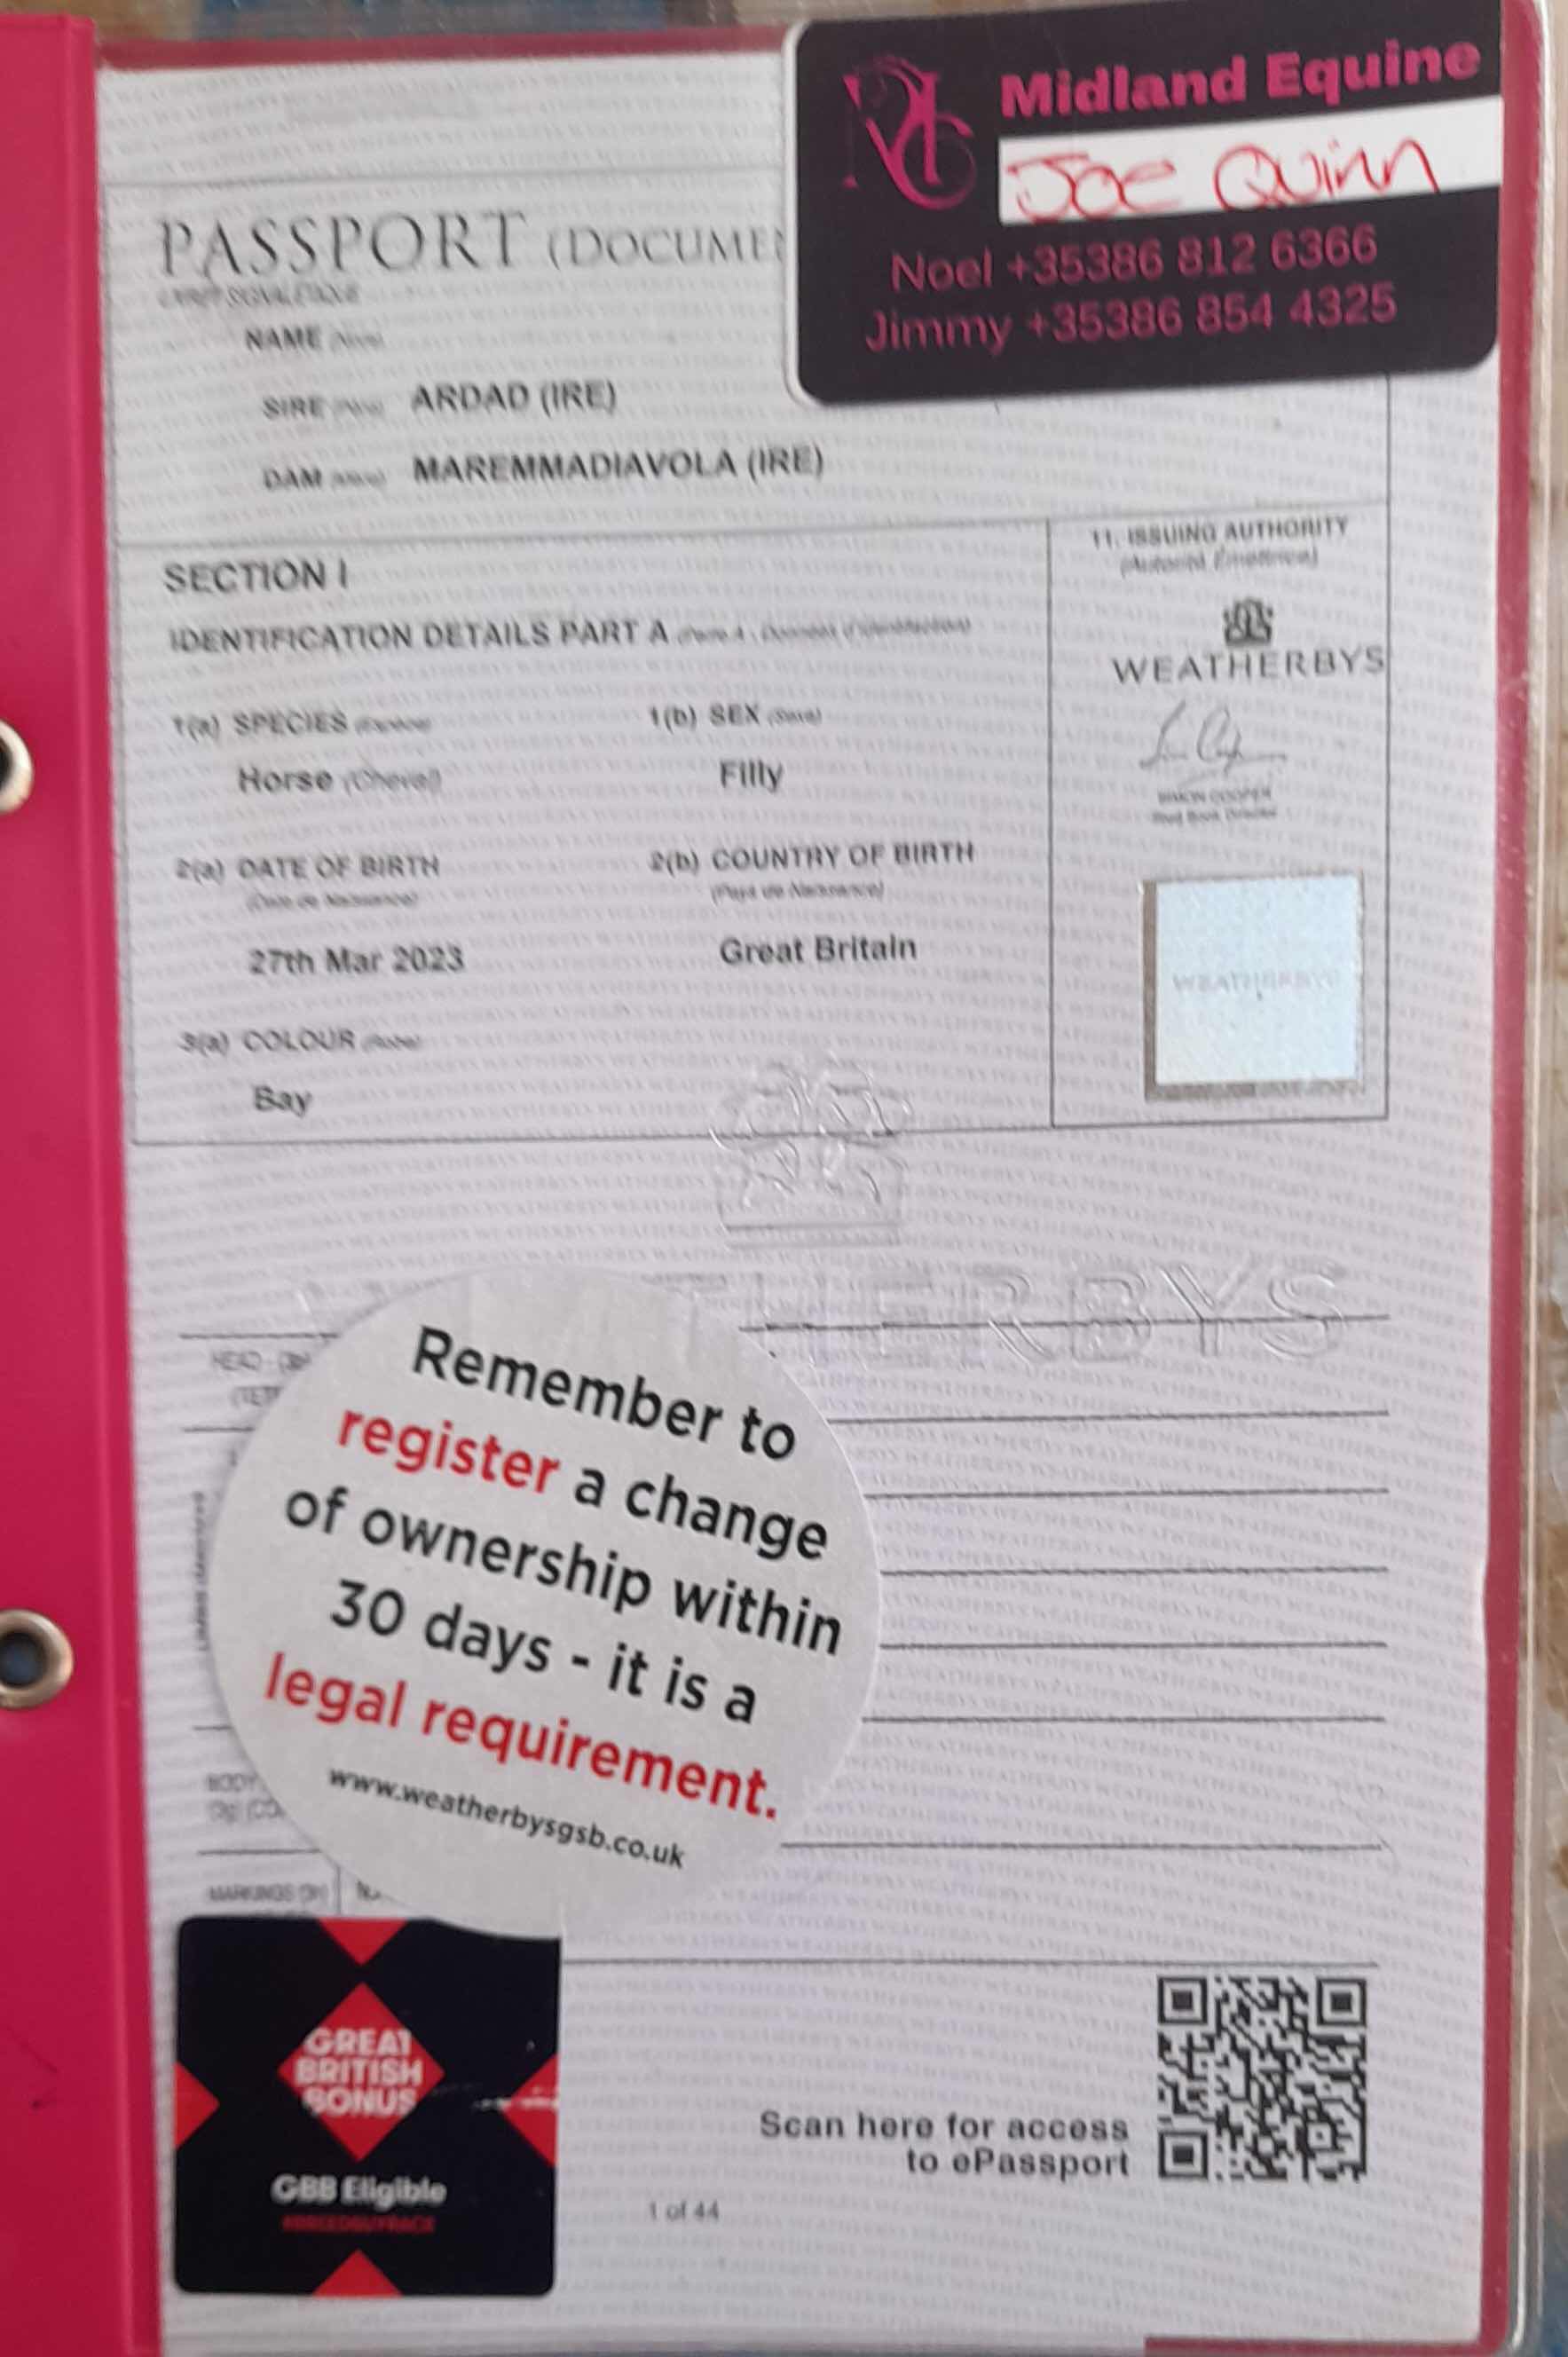 Midland Equine
Joe Quinn
Noel +35386 812 6366
Jimmy +35386 854 4325
PASSPORT (DOCUME
NAME
SIRE ARDAD (IRE)
DAM MAREMMADIAVOLA (IRE)
SECTION I
IDENTIFICATION DETAILS PART A
1(a) SPECIES 1(b) SEX
Horse (Cheval) Filly
2(a) DATE OF BIRTH 2(b) COUNTRY OF BIRTH
(Date de Naissance) (Pays de Naissance)
27th Mar 2023 Great Britain
3(a) COLOUR (Robe)
Bay
11. ISSUING AUTHORITY
(Autorité Émettrice)
WEATHERBYS
SIMON COOPER
Stud Book Director
WEATHERBYS
HEAD
Remember to
register a change
of ownership within
30 days - it is a
legal requirement.
www.weatherbysgsb.co.uk
BODY
MARKINGS
GREAT
BRITISH
BONUS
GBB Eligible
Scan here for access
to ePassport
1 of 44